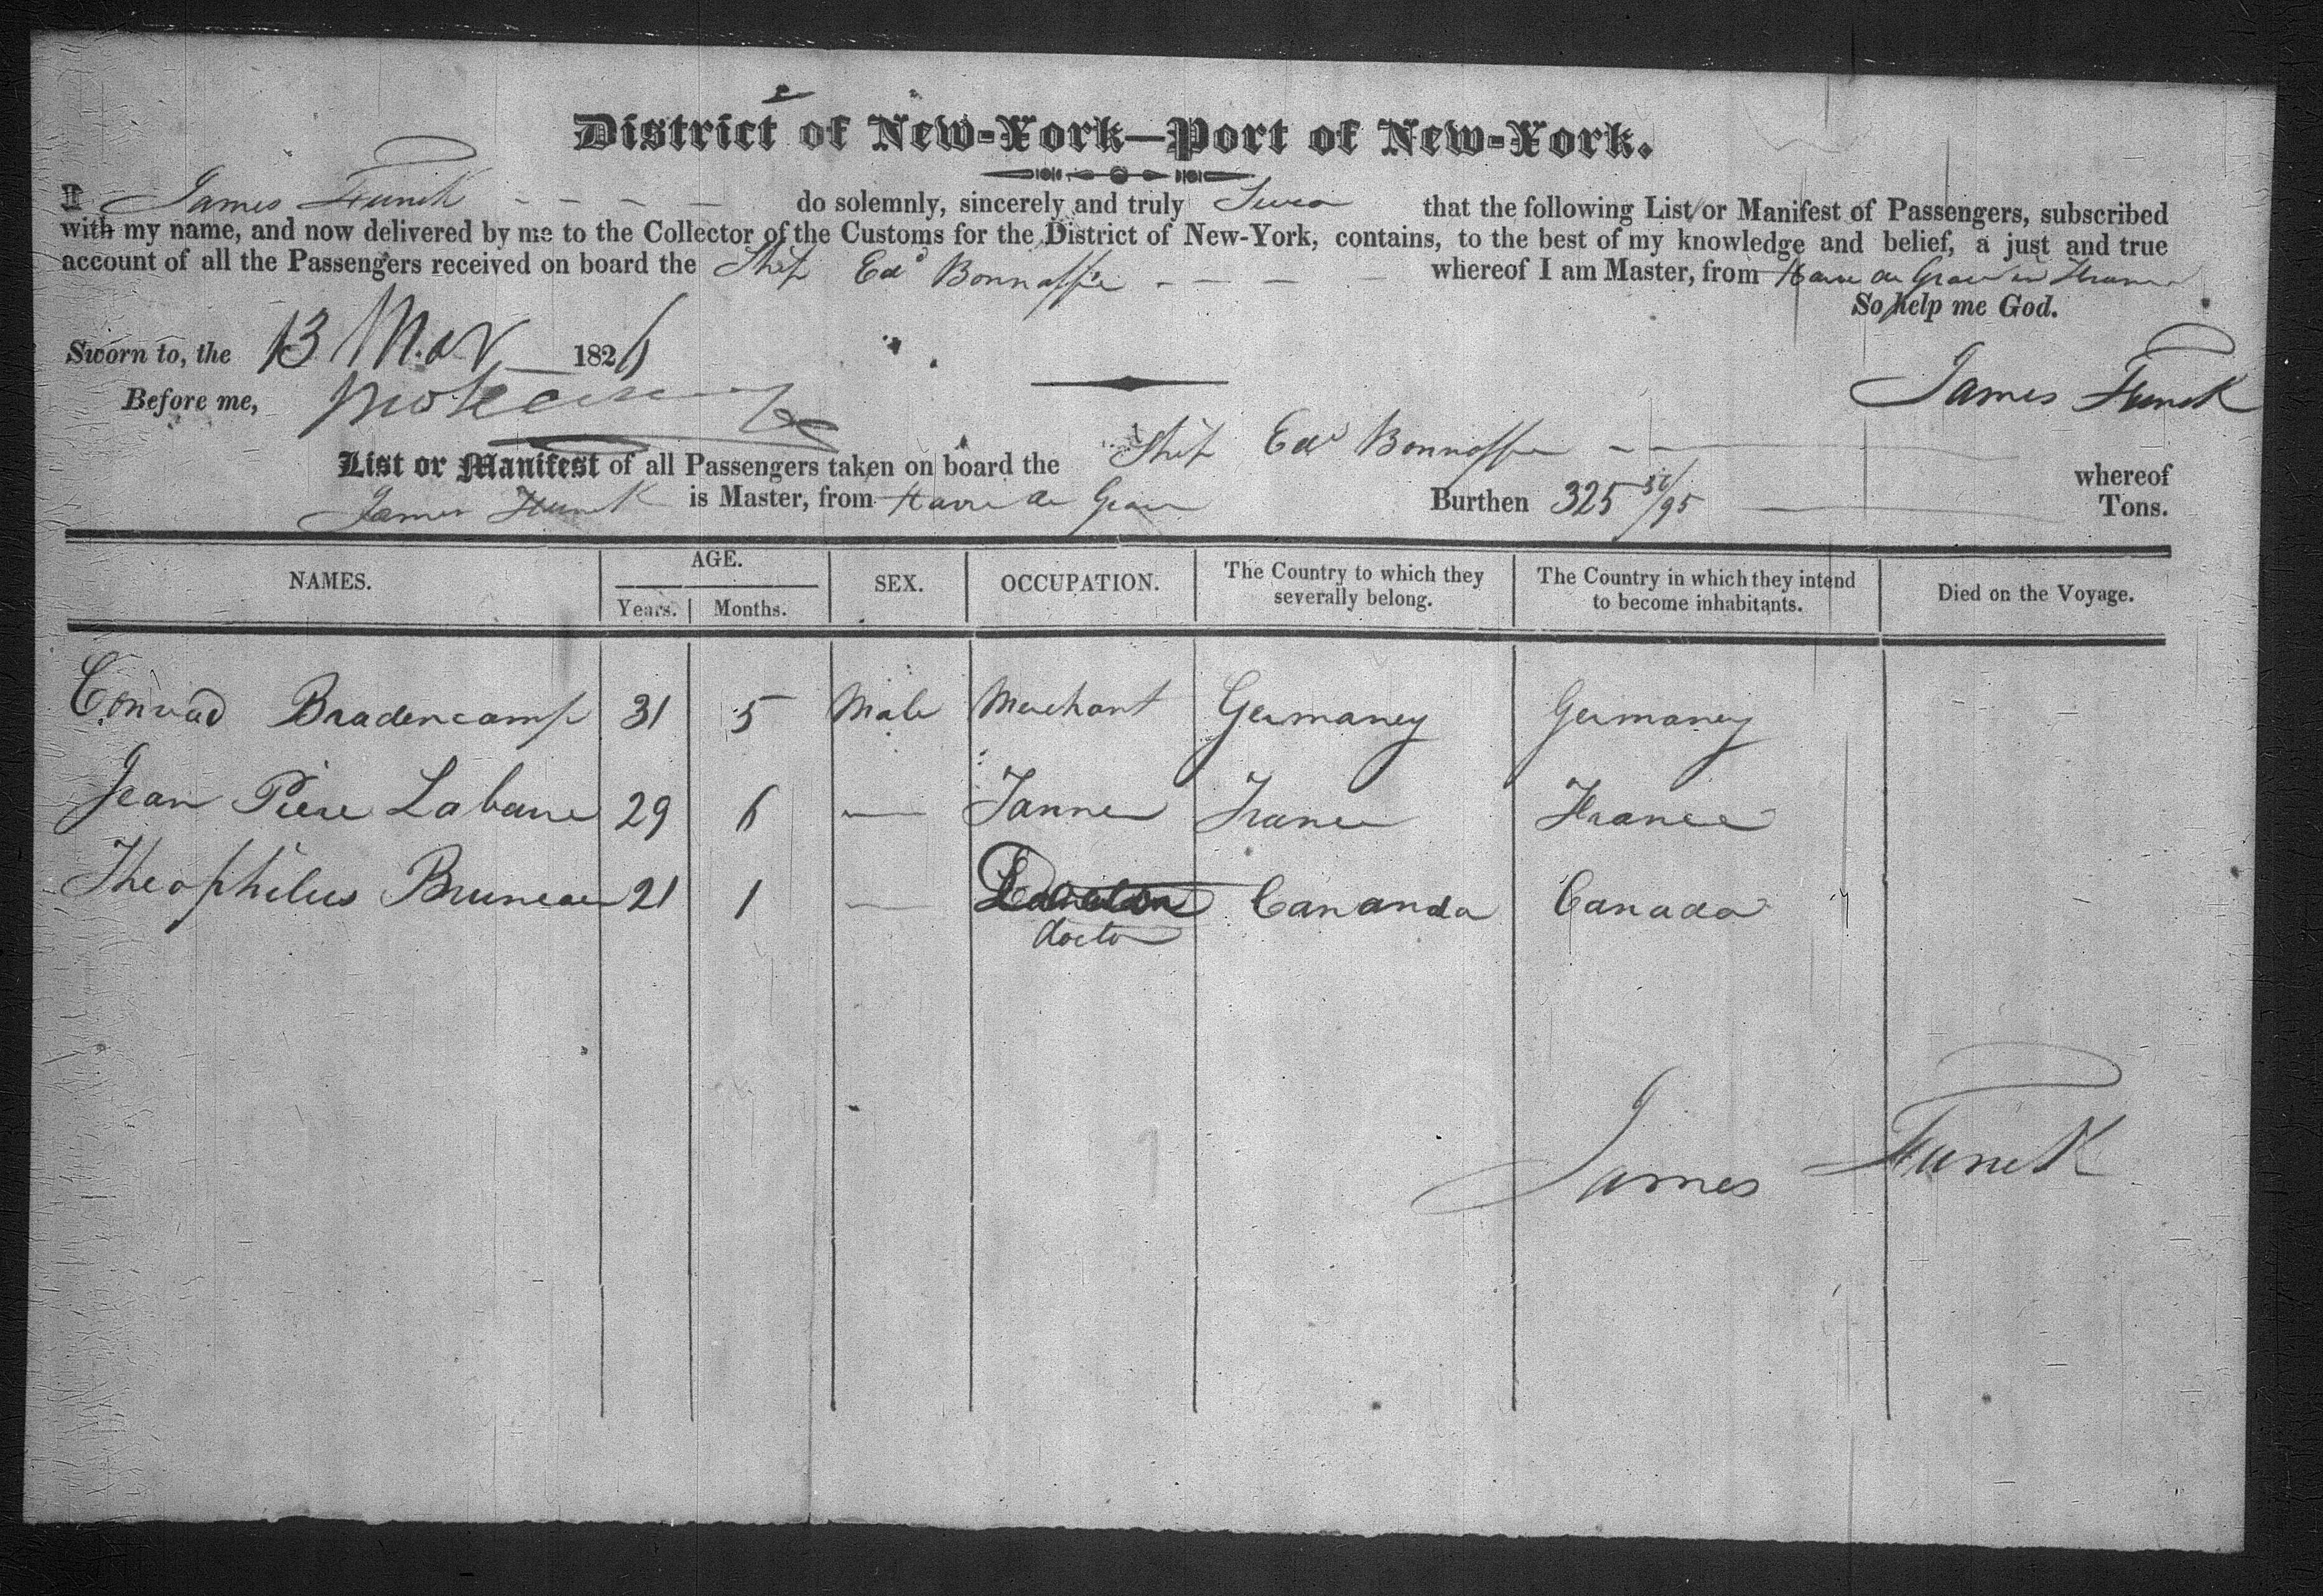 District of New-York—Port of New-York.
I James Funck do solemnly, sincerely and truly Swear that the following List or Manifest of Passengers, subscribed
with my name, and now delivered by me to the Collector of the Customs for the District of New-York, contains, to the best of my knowledge and belief, a just and true
account of all the Passengers received on board the Ship Edd Bonnaffe whereof I am Master, from Havre de Grace in France
So help me God.
Sworn to, the 13 Mar 1826
James Funck
Before me,
List or Manifest of all Passengers taken on board the Ship Edd Bonnaffe whereof
James Funck is Master, from Havre de Grace Burthen 325 /95 Tons.
NAMES. AGE. SEX. OCCUPATION. The Country to which they severally belong. The Country in which they intend to become inhabitants. Died on the Voyage.
Years. Months.
Conrad Bradencamp 31 5 Male Merchant Germaney Germaney
Jean Piere Labane 29 6 — Tanner France France
Theophilus Bruneau 21 1 — Cananda Canada
doctor
James Funck